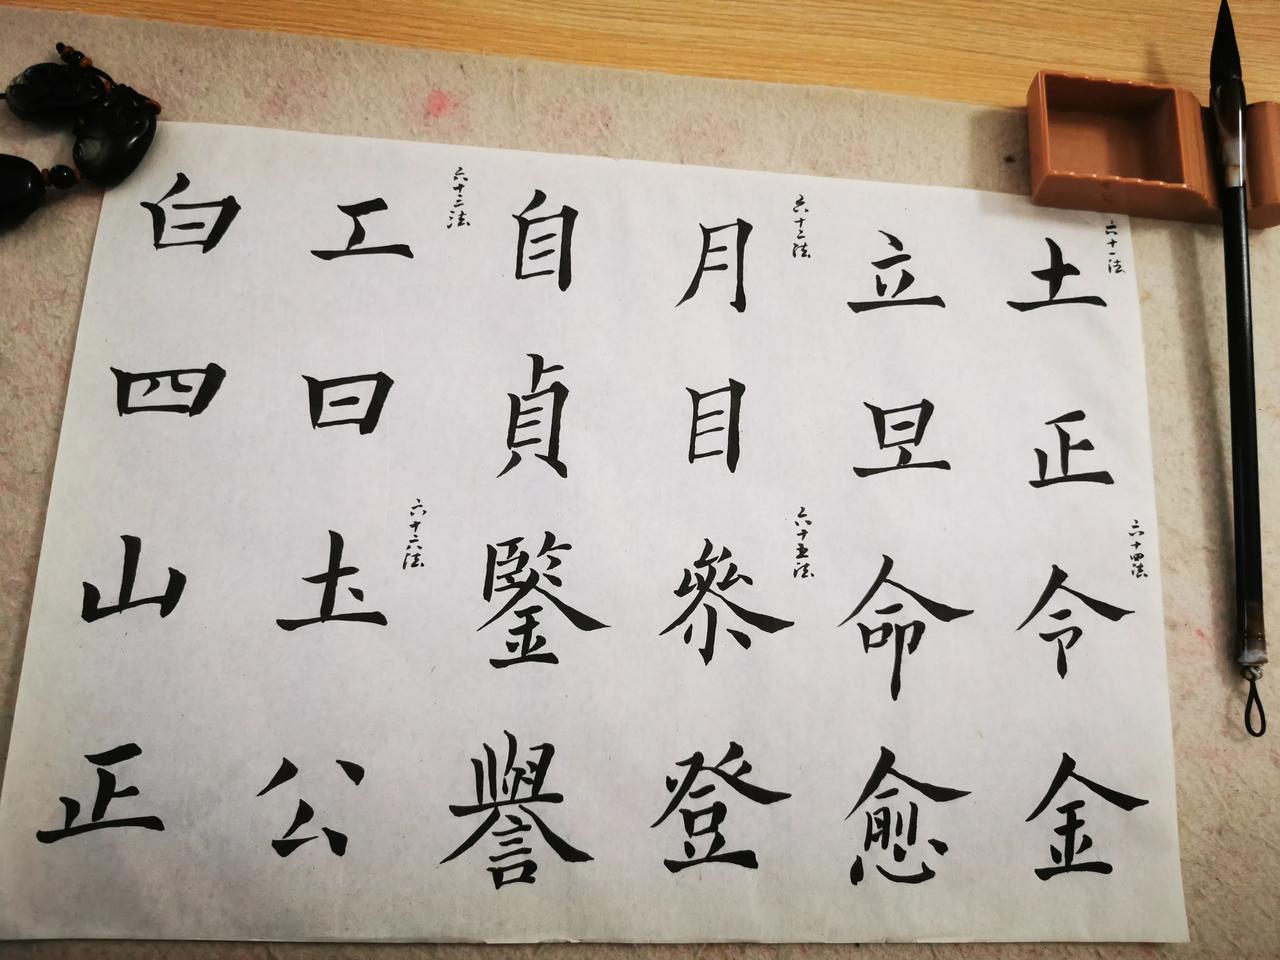 六十一法
土正
立
六十二法
月目
自貞
六十三法
工曰
白四
六十四法
令金
命愈
六十五法
參登
鑒譽
六十六法
圡公
山正